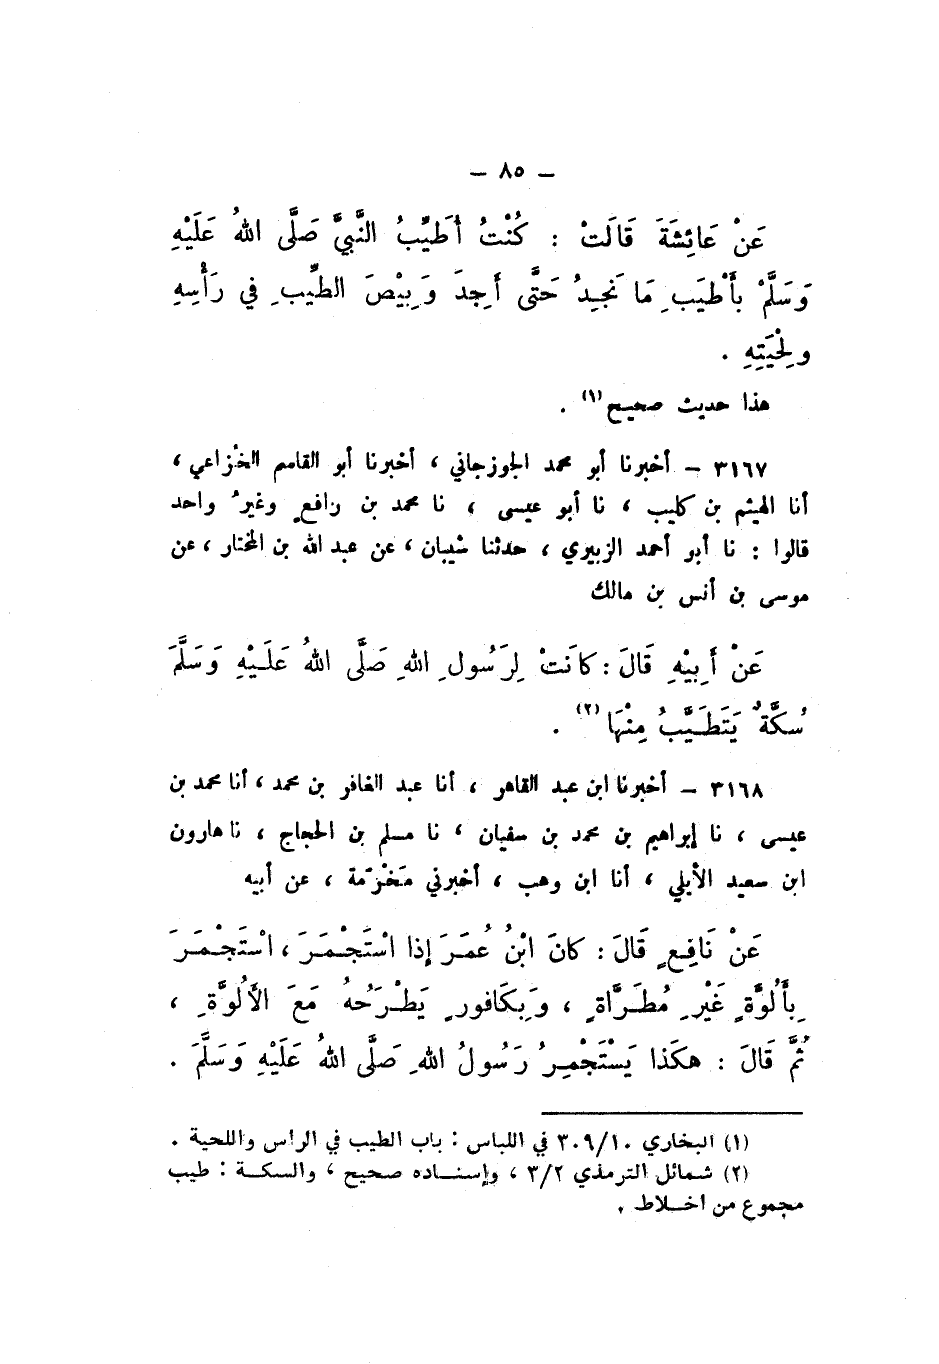 — ٨٥ —
عَنْ عَائِشَةَ قَالَتْ : كُنْتُ أُطَيِّبُ النَّبِيَّ صَلَّى اللهُ عَلَيْهِ
وَسَلَّمْ بِأَطْيَبِ مَا نَجِدُ حَتَّى أَجِدَ وَبِيْصَ الطِّيبِ فِي رَأْسِهِ
ولِحْيَتِهِ .
هذا حديث صحيح (١) .
٣١٦٧ — أخبرنا أبو محمد الجوزجاني ، أخبرنا أبو القاسم الخُزاعي ،
أنا الهيثم بن كليب ، نا أبو عيسى ، نا محمد بن رافعٍ وغيرُ واحد
قالوا : نا أبو أحمد الزبيري ، حدثنا شيبان ، عن عبد الله بن المختار ، عن
موسى بن أنس بن مالك
عَنْ أَبِيْهِ قَالَ : كَانَتْ لِرَسُولِ اللهِ صَلَّى اللهُ عَلَيْهِ وَسَلَّمَ
سُكَّةٌ يَتَطَيَّبُ مِنْهَا (٢) .
٣١٦٨ — أخبرنا ابن عبد القاهر ، أنا عبد الغافر بن محمد ، أنا محمد بن
عيسى ، نا إبراهيم بن محمد بن سفيان ، نا مسلم بن الحجاج ، نا هارون
ابن سعيد الأيلي ، أنا ابن وهب ، أخبرني مَخْرَمة ، عن أبيه
عَنْ نَافِعٍ قَالَ : كَانَ ابْنُ عُمَرَ إِذَا اسْتَجْمَرَ ، اسْتَجْمَرَ
بِأَلُوَّةٍ غَيْرِ مُطَرَّاةٍ ، وَبِكَافورٍ يَطْرَحُهُ مَعَ الأَلُوَّةِ ،
ثُمَّ قَالَ : هكَذا يَسْتَجْمِرُ رَسُولُ اللهِ صَلَّى اللهُ عَلَيْهِ وَسَلَّمَ .
(١) البخاري ٣٠٩/١٠ في اللباس : باب الطيب في الرأس واللحية .
(٢) شمائل الترمذي ٣/٢ ، وإسناده صحيح ، والسكة : طيب
مجموع من اخلاط .